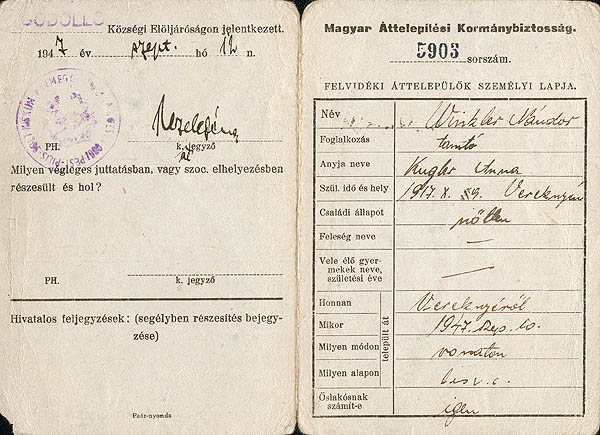 GÖDÖLLŐ Községi Elöljáróságon jelentkezett.
1947 év szept. hó 12 n.
PH.
k. jegyző
Milyen végleges juttatásban, vagy szoc. elhelyezésben
részesült és hol?
PH.
k. jegyző
Hivatalos feljegyzések: (segélyben részesítés bejegy-
zése)
Paár-nyomda
Magyar Áttelepítési Kormánybiztosság.
5903 sorszám.
FELVIDÉKI ÁTTELEPÜLŐK SZEMÉLYI LAPJA.
Név Winkler Nándor
Foglalkozás tanító
Anyja neve Kugler Anna
Szül. idő és hely 1917. X. 29. Vereknyén
Családi állapot nőtlen
Feleség neve —
Vele élő gyer-
mekek neve, —
születési éve
Honnan Vereknyéről
Mikor 1947. szep. 10.
Milyen módon vonaton
Milyen alapon
települt át
Őslakósnak
számít-e igen